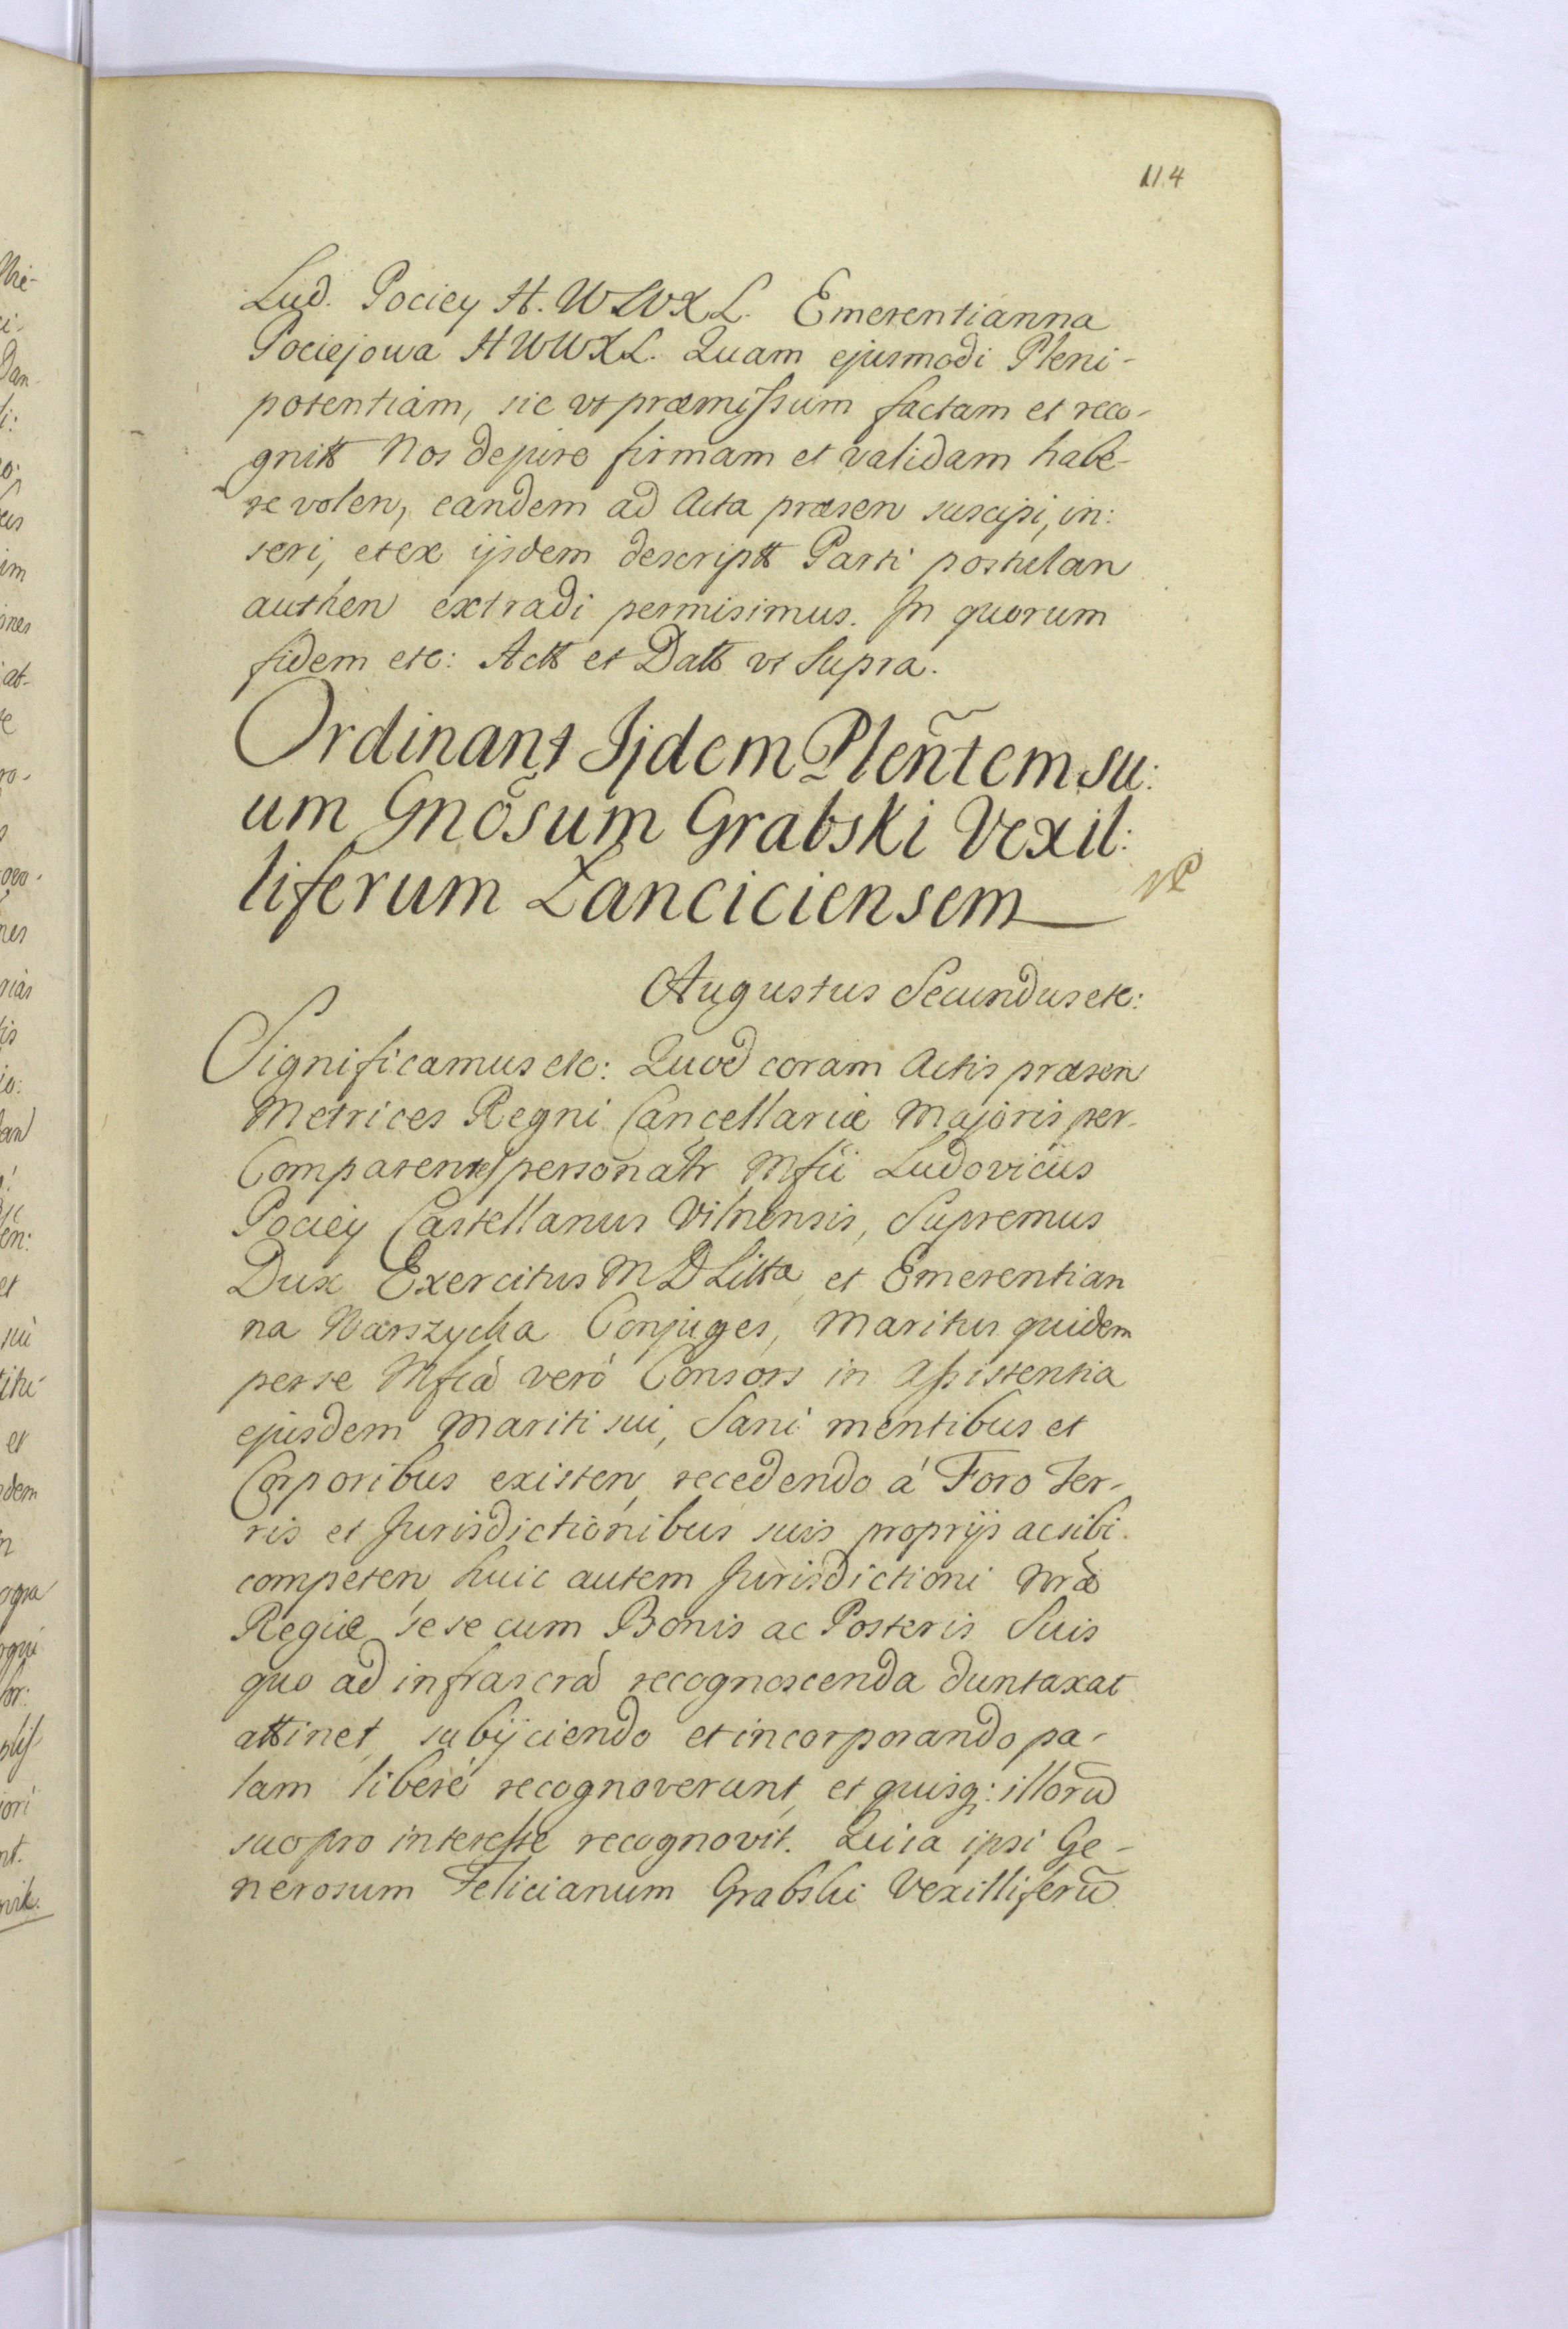 114
Lud. Pociey H. W LWXL. Emerentianna
Pociejowa HWWXL. Quam ejusmodi Pleni-
potentiam, sic vt præmissum factam et reco-
gnitt Nos de jure firmam et validam habe-
re volen, eandem ad Acta præsen suscipi, in:
seri, et ex ijsdem descriptt Parti postulan
authen extradi permisimus. In quorum
fidem etc: Actt et Datt vt Supra.
Ordinant Ijdem Pleñtem su:
um Gnõsum Grabski Vexil:
liferum Lanciciensem
Augustus Secundus etc:
Significamus etc: Quod coram Actis præsen
Metrices Regni Cancellariæ Majoris per-
Comparentes personatr Mfci Ludovicus
Pociey Castellanus Vilnensis, Supremus
Dux Exercitus M D Litta et Emerentian
na Warszycka Conjuges, Maritus quidem
per se Mfca verò Consors in Assistentia
ejusdem Mariti sui, Sani mentibus et
Corporibus existen, recedendo à Foro Ter-
ris et Jurisdictionibus suis proprijs ac sibi
competen, huic autem Jurisdictioni Nræ
Regiæ sese cum Bonis ac Posteris Suis
quo ad infrascra recognoscenda duntaxat
attinet subijciendo et incorporando pa-
lam liberè recognoverunt, et quisq: illorũ
suo pro interesse recognovit. Quia ipsi Ge-
nerosum Felicianum Grabski Vexilliferũ